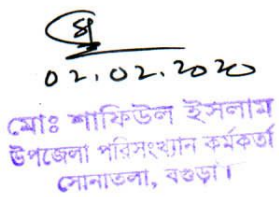 02.02.2020
মোঃ শাফিউল ইসলাম
উপজেলা পরিসংখ্যান কর্মকর্তা
সোনাতলা, বগুড়া।